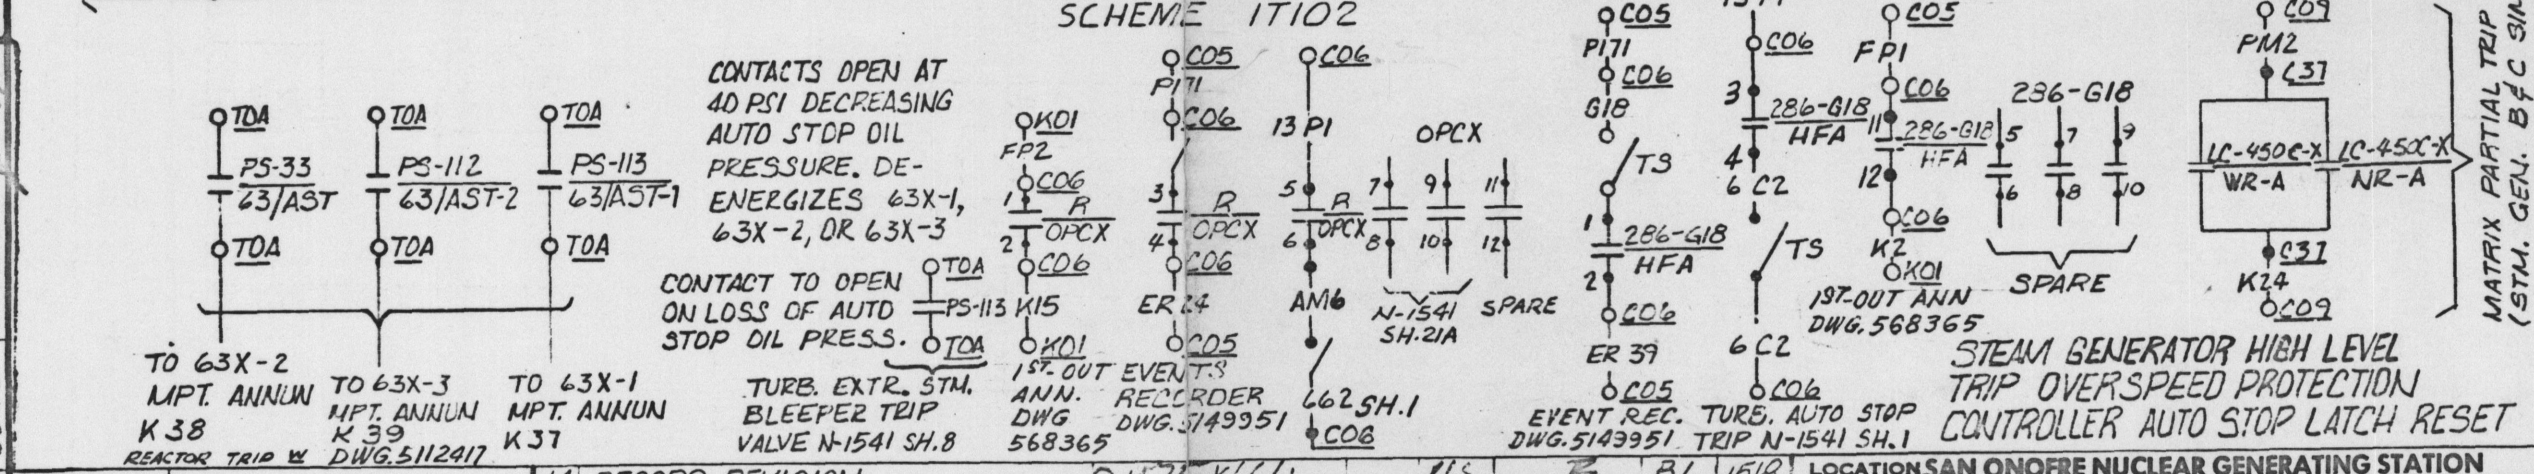 SCHEME 1T102
TOA
PS-33
63/AST
TOA
TO 63X-2
MPT. ANNUN
K38
REACTOR TRIP W
TOA
PS-112
63/AST-2
TOA
TO 63X-3
MPT. ANNUN
K39
DWG.5112417
TOA
PS-113
63/AST-1
TOA
TO 63X-1
MPT. ANNUN
K37
CONTACTS OPEN AT
40 PSI DECREASING
AUTO STOP OIL
PRESSURE. DE-
ENERGIZES 63X-1,
63X-2, OR 63X-3
CONTACT TO OPEN
ON LOSS OF AUTO
STOP OIL PRESS.
TOA
PS-113
TOA
TURB. EXTR. STM.
BLEEPER TRIP
VALVE N-1541 SH.8
K01
FP2
C06
1
R
OPCX
2
C06
K15
K01
1ST-OUT
ANN.
DWG
568365
C05
P171
C06
3
R
OPCX
4
C06
ER 24
C05
EVENTS
RECORDER
DWG.5149951
C06
13 P1
5
R
OPCX
6
AM6
L62 SH.1
C06
OPCX
7
8
9
10
N-1541
SH.21A
11
12
SPARE
C05
P171
C06
G18
TS
1
286-G18
HFA
2
C06
ER 39
C05
EVENT REC.
DWG.5149951
C06
3
286-G18
HFA
4
6 C2
TS
6 C2
C06
TURB. AUTO STOP
TRIP N-1541 SH.1
C05
FP1
C06
11
286-G18
HFA
12
C06
K2
K01
1ST-OUT ANN
DWG.568365
286-G18
5
6
7
8
9
10
SPARE
C09
PM2
C37
LC-450C-X
WR-A
LC-450C-X
NR-A
C37
K24
C09
MATRIX PARTIAL TRIP
(STM. GEN. B & C
STEAM GENERATOR HIGH LEVEL
TRIP OVERSPEED PROTECTION
CONTROLLER AUTO STOP LATCH RESET
LOCATION SAN ONOFRE NUCLEAR GENERATING STATION